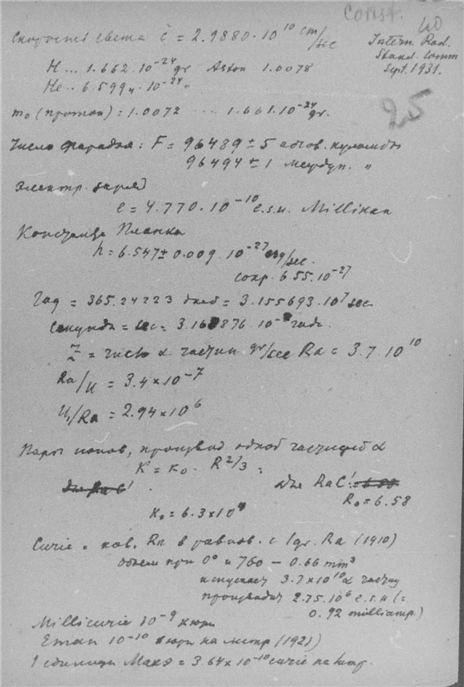 Const.
40
Скорость света c = 2.9880 . 10¹⁰ cm/sec
Intern. Rad.
Stand. Comm
Sept. 1931.
H ... 1.662 . 10⁻²⁴ gr Aston 1.0078
He .. 6.599 . 10⁻²⁴ "
25
m₀ (протон) = 1.0072 ... 1.661 . 10⁻²⁴ gr.
Число фарадея: F = 96489 ± 5 абсол. кулонов
96494 ± 1 междун. "
Электр. заряд
e = 4.770 . 10⁻¹⁰ e.s.u. Millikan
Константа Планка
h = 6.547 ± 0.009 . 10⁻²⁷ erg/sec.
сокр. 6.55 . 10⁻²⁷
Год = 365.24223 дней = 3.155693 . 10⁷ sec
Секунда = sec = 3.168876 . 10⁻⁸ года.
Z = число α частиц gr/sec Ra = 3.7 . 10¹⁰
Ra/U = 3.4 × 10⁻⁷
U/Ra = 2.94 × 10⁶
Пары ионов, производ одной частицей α
K = K₀ . R²/³ =
для RaC'
для RaC'
R₀ = 6.58
K₀ = 6.3 × 10⁴
Curie = кол. Rn в равнов. с 1 gr. Ra (1910)
объем при 0° и 760 – 0.66 mm³
испускает 3.7 × 10¹⁰ α частиц
производит 2.75 . 10⁶ e.s.u (=
0.92 milliamp.)
Millicurie 10⁻⁹ кюри
Eman 10⁻¹⁰ кюри на литр (1921)
1 единица Махэ = 3.64 × 10⁻¹⁰ curie на литр.